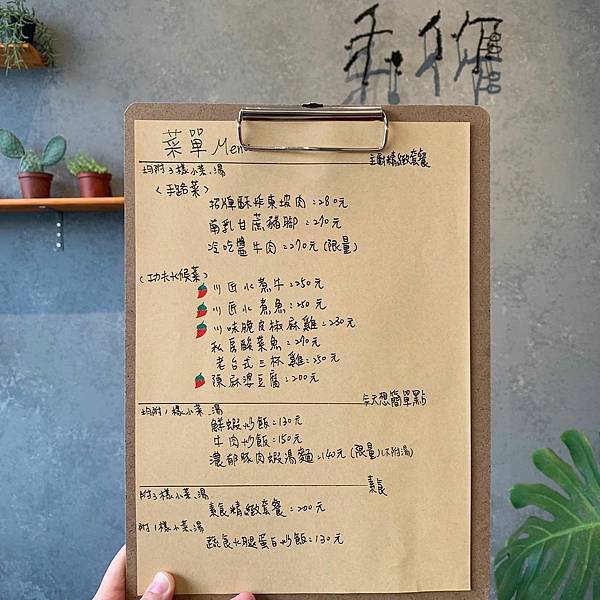 菜單 Menu
主廚精緻套餐
均附3樣小菜.湯
〈手路菜〉
招牌酥炸東坡肉:280元
南乳甘蔗豬腳:270元
冷吃醬牛肉:270元(限量)
〈功夫火候菜〉
川匠水煮牛:250元
川匠水煮魚:250元
川味脆皮椒麻雞:230元
私房酸菜魚:270元
老台式三杯雞:250元
陳麻婆豆腐:200元
今天想簡單點
均附1樣小菜.湯
鮮蝦炒飯:130元
牛肉炒飯:150元
濃郁豚肉蝦湯麵:140元(限量)(不附湯)
素食
附3樣小菜.湯
素食精緻套餐:200元
附1樣小菜.湯
蔬食火腿蛋白炒飯:130元